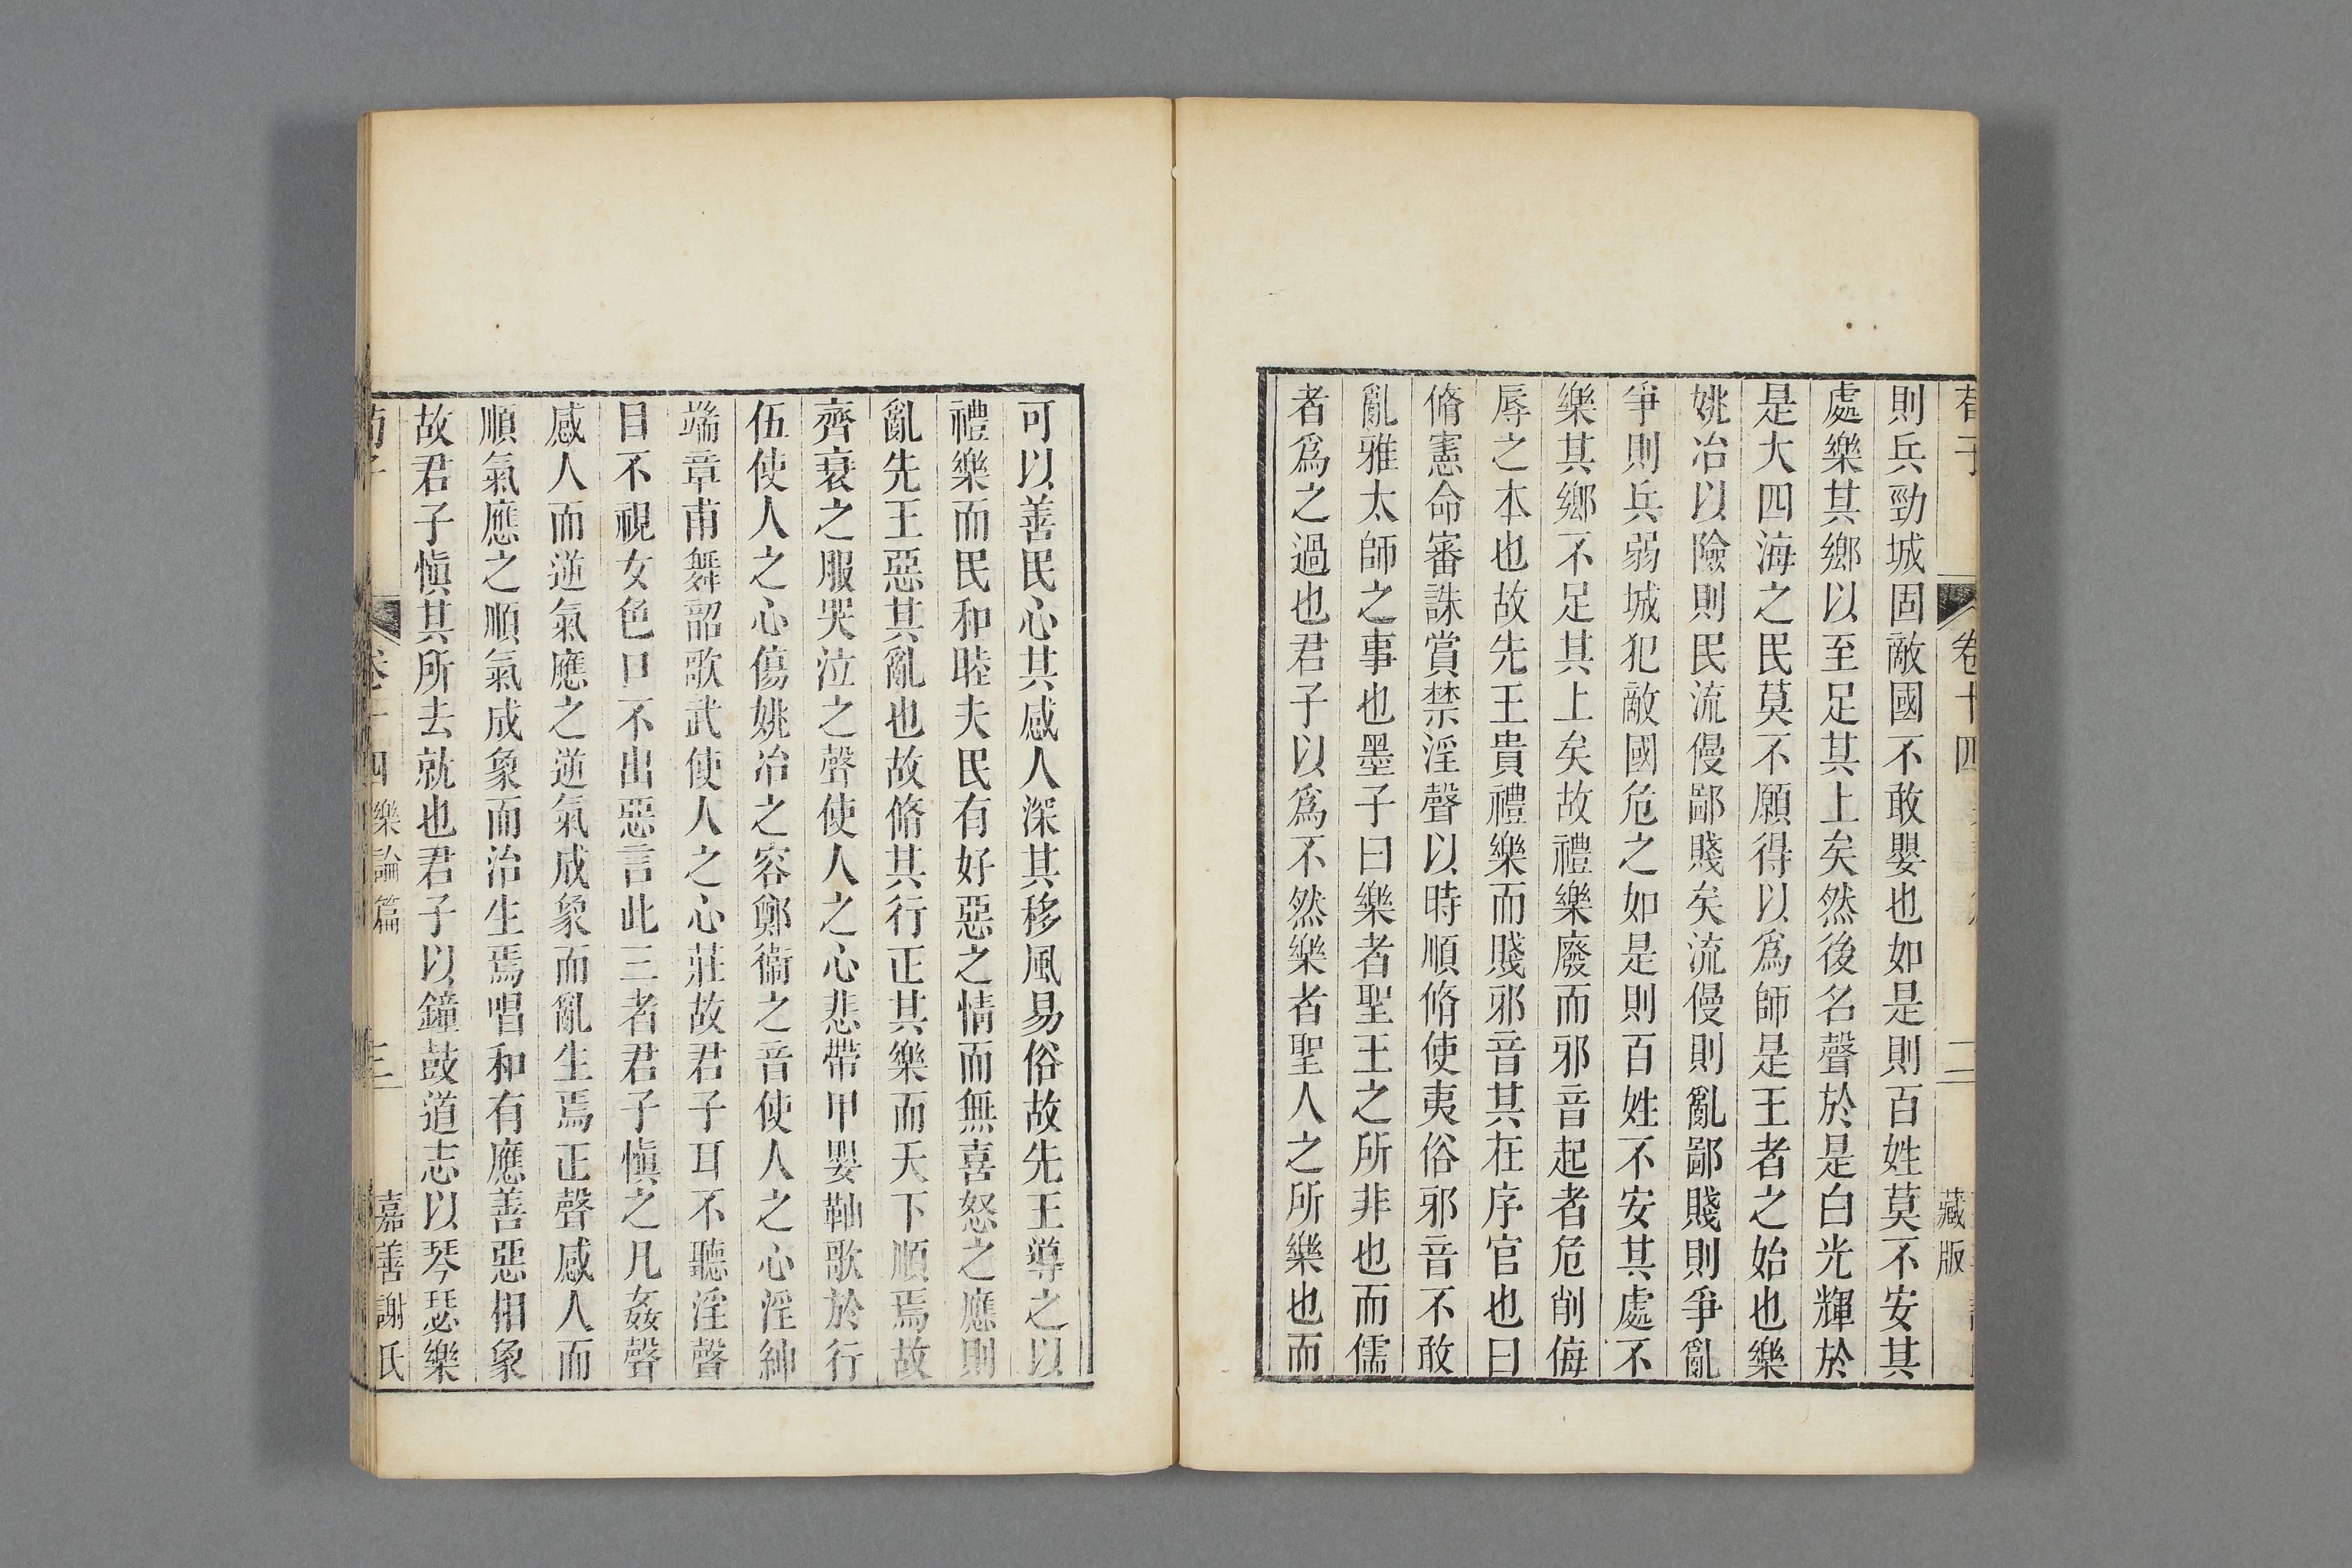 荀子 卷十四 二 藏版
則兵勁城固敵國不敢嬰也如是則百姓莫不安其
處樂其鄉以至足其上矣然後名聲於是白光輝於
是大四海之民莫不願得以爲師是王者之始也樂
姚冶以險則民流僈鄙賤矣流僈則亂鄙賤則爭亂
爭則兵弱城犯敵國危之如是則百姓不安其處不
樂其鄉不足其上矣故禮樂廢而邪音起者危削侮
辱之本也故先王貴禮樂而賤邪音其在序官也曰
脩憲命審誅賞禁淫聲以時順脩使夷俗邪音不敢
亂雅太師之事也墨子曰樂者聖王之所非也而儒
者爲之過也君子以爲不然樂者聖人之所樂也而
可以善民心其感人深其移風易俗故先王導之以
禮樂而民和睦夫民有好惡之情而無喜怒之應則
亂先王惡其亂也故脩其行正其樂而天下順焉故
齊衰之服哭泣之聲使人之心悲帶甲嬰𩊄歌於行
伍使人之心傷姚冶之容鄭衞之音使人之心淫紳
端章甫舞韶歌武使人之心莊故君子耳不聽淫聲
目不視女色口不出惡言此三者君子愼之凡姦聲
感人而逆氣應之逆氣成象而亂生焉正聲感人而
順氣應之順氣成象而治生焉唱和有應善惡相象
故君子愼其所去就也君子以鐘鼓道志以琴瑟樂
荀子 卷十四 樂論篇 三 嘉善謝氏